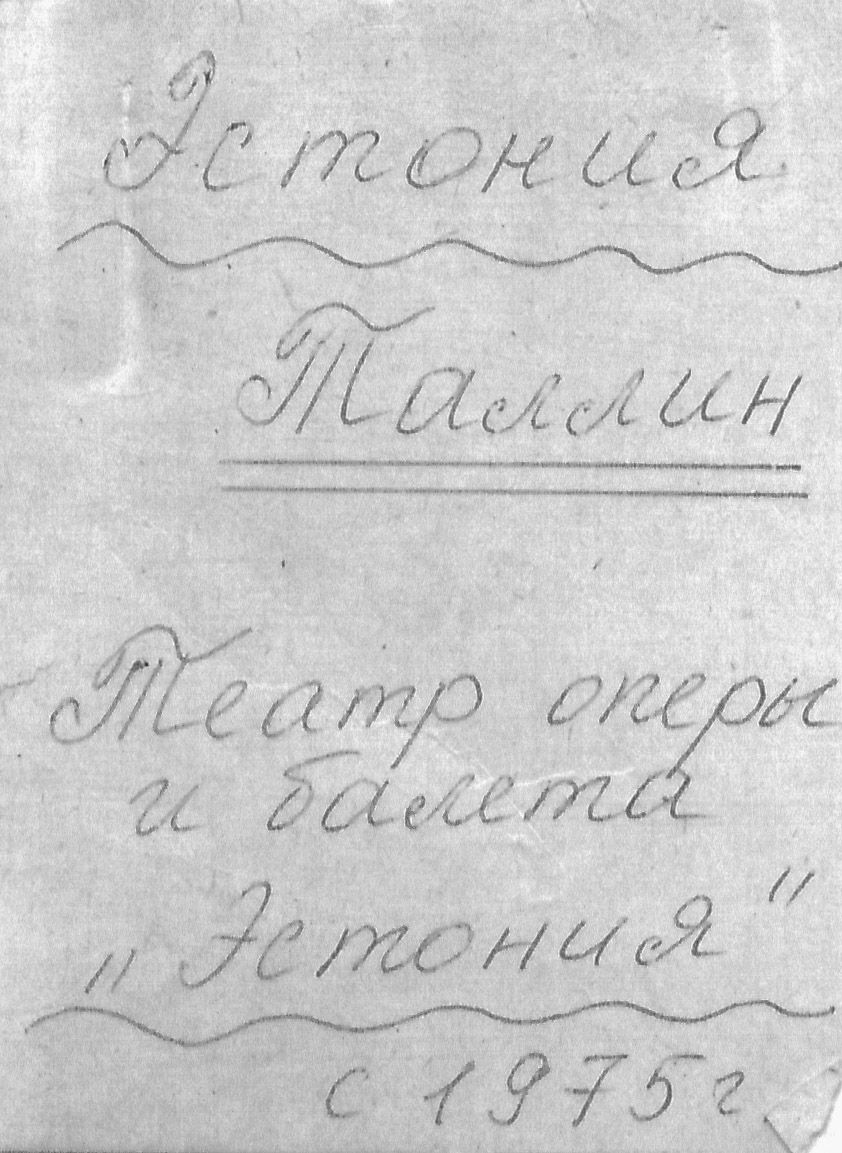 Эстония
Таллин
Театр оперы
и балета
„Эстония"
с 1975 г